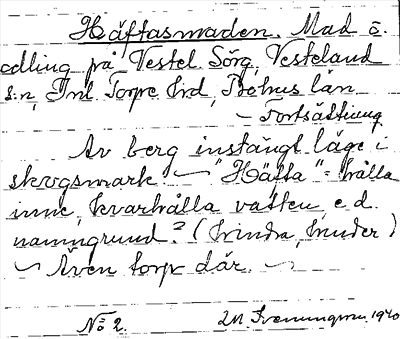 Häftasmaden. Mad o.
odling på Vestel Sörg, Vesteland
s:n, Inl Torpe hrd, Bohus län
- Fortsättning
Av berg instängt läge i
skogsmark. ~ "Häfta" = hålla
inne, kvarhålla vatten, e. d.
namngrund? (hindra, hinder)
~ Även torp där. ~
No 2. M. Svenungson. 1940